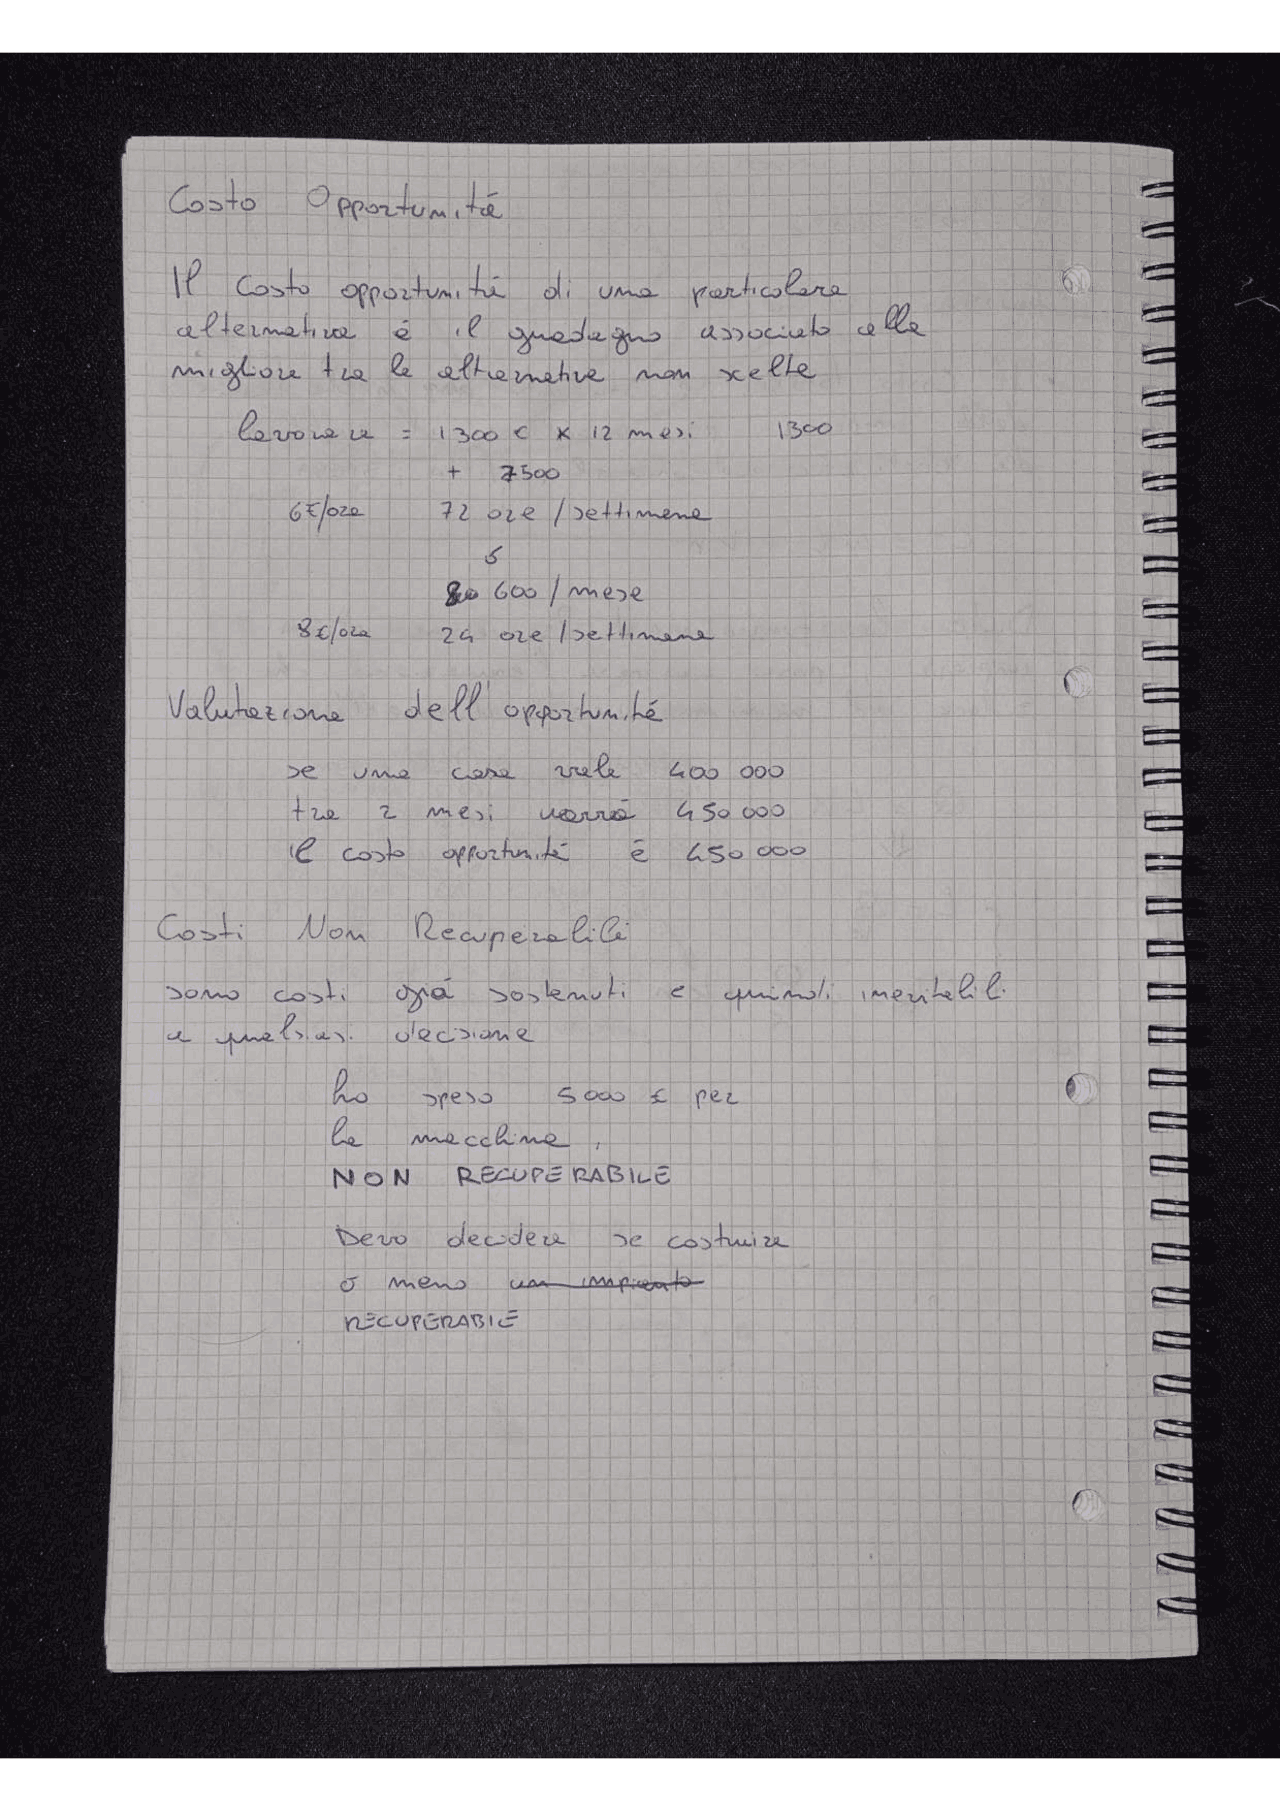 Costo Opportunitá
Il costo opportunitá di una particolare
alternativa é il guadagno associato alla
migliore tra le altrernative non scelte
lavorare = 1300 € x 12 mesi 1300
+ 7500
6€/ora 72 ore / settimana
600 / mese
8€/ora 24 ore / settimana
Valutazione dell'opportunitá
se una casa vale 400 000
tra 2 mesi varrá 450 000
il costo opportunitá é 450 000
Costi Non Recuperabili
sono costi giá sostenuti e quindi inevitabili
a qualsiasi decisione
ho speso 5000 € per
la macchina,
NON RECUPERABILE
Devo decidere se costruire
o meno un impianto
RECUPERABIE